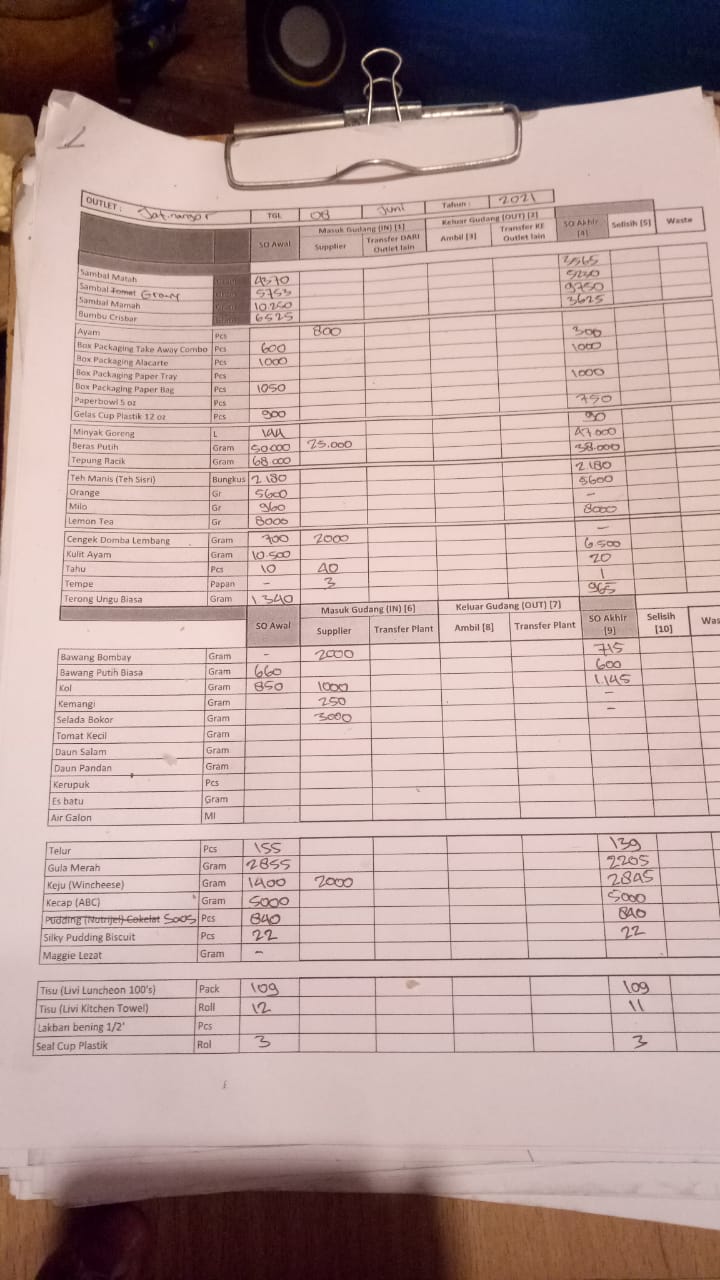 1
OUTLET : Jatinangor TGL 08 Juni Tahun : 2021
SO Awal Masuk Gudang (IN) [1] Keluar Gudang (OUT) [2] SO Akhir [4] Selisih [5] Waste
Supplier Transfer DARI Outlet lain Ambil [3] Transfer KE Outlet lain
Sambal Matah 4370 3565
Sambal Tomat Gerony 5753 5230
Sambal Mamah 10.250 9750
Bumbu Crisbar 6525 3625
Ayam Pcs 800 300
Box Packaging Take Away Combo Pcs 600 1000
Box Packaging Alacarte Pcs 1000
Box Packaging Paper Tray Pcs 1000
Box Packaging Paper Bag Pcs 1050
Paperbowl 5 oz Pcs 750
Gelas Cup Plastik 12 oz Pcs 900 90
Minyak Goreng L 144 47000
Beras Putih Gram 50000 25.000 38.000
Tepung Racik Gram 68.000
Teh Manis (Teh Sisri) Bungkus 2180 2180
Orange Gr 5600 5600
Milo Gr 960 -
Lemon Tea Gr 8000 8000
Cengek Domba Lembang Gram 700 2000 -
Kulit Ayam Gram 10.500 6.500
Tahu Pcs 10 40 20
Tempe Papan - 3 1
Terong Ungu Biasa Gram 1.340 965
SO Awal Masuk Gudang (IN) [6] Keluar Gudang (OUT) [7] SO Akhir [9] Selisih [10] Was
Supplier Transfer Plant Ambil [8] Transfer Plant
Bawang Bombay Gram - 2000 715
Bawang Putih Biasa Gram 660 600
Kol Gram 850 1000 1.145
Kemangi Gram 250 -
Selada Bokor Gram 3000 -
Tomat Kecil Gram
Daun Salam Gram
Daun Pandan Gram
Kerupuk Pcs
Es batu Gram
Air Galon Ml
Telur Pcs 155 139
Gula Merah Gram 2855 2205
Keju (Wincheese) Gram 1400 2000 2845
Kecap (ABC) Gram 5000 5000
Pudding (Nutrijel) Cokelat Saos Pcs 840 840
Silky Pudding Biscuit Pcs 22 22
Maggie Lezat Gram -
Tisu (Livi Luncheon 100's) Pack 109 109
Tisu (Livi Kitchen Towel) Roll 12 11
Lakban bening 1/2' Pcs
Seal Cup Plastik Rol 3 3